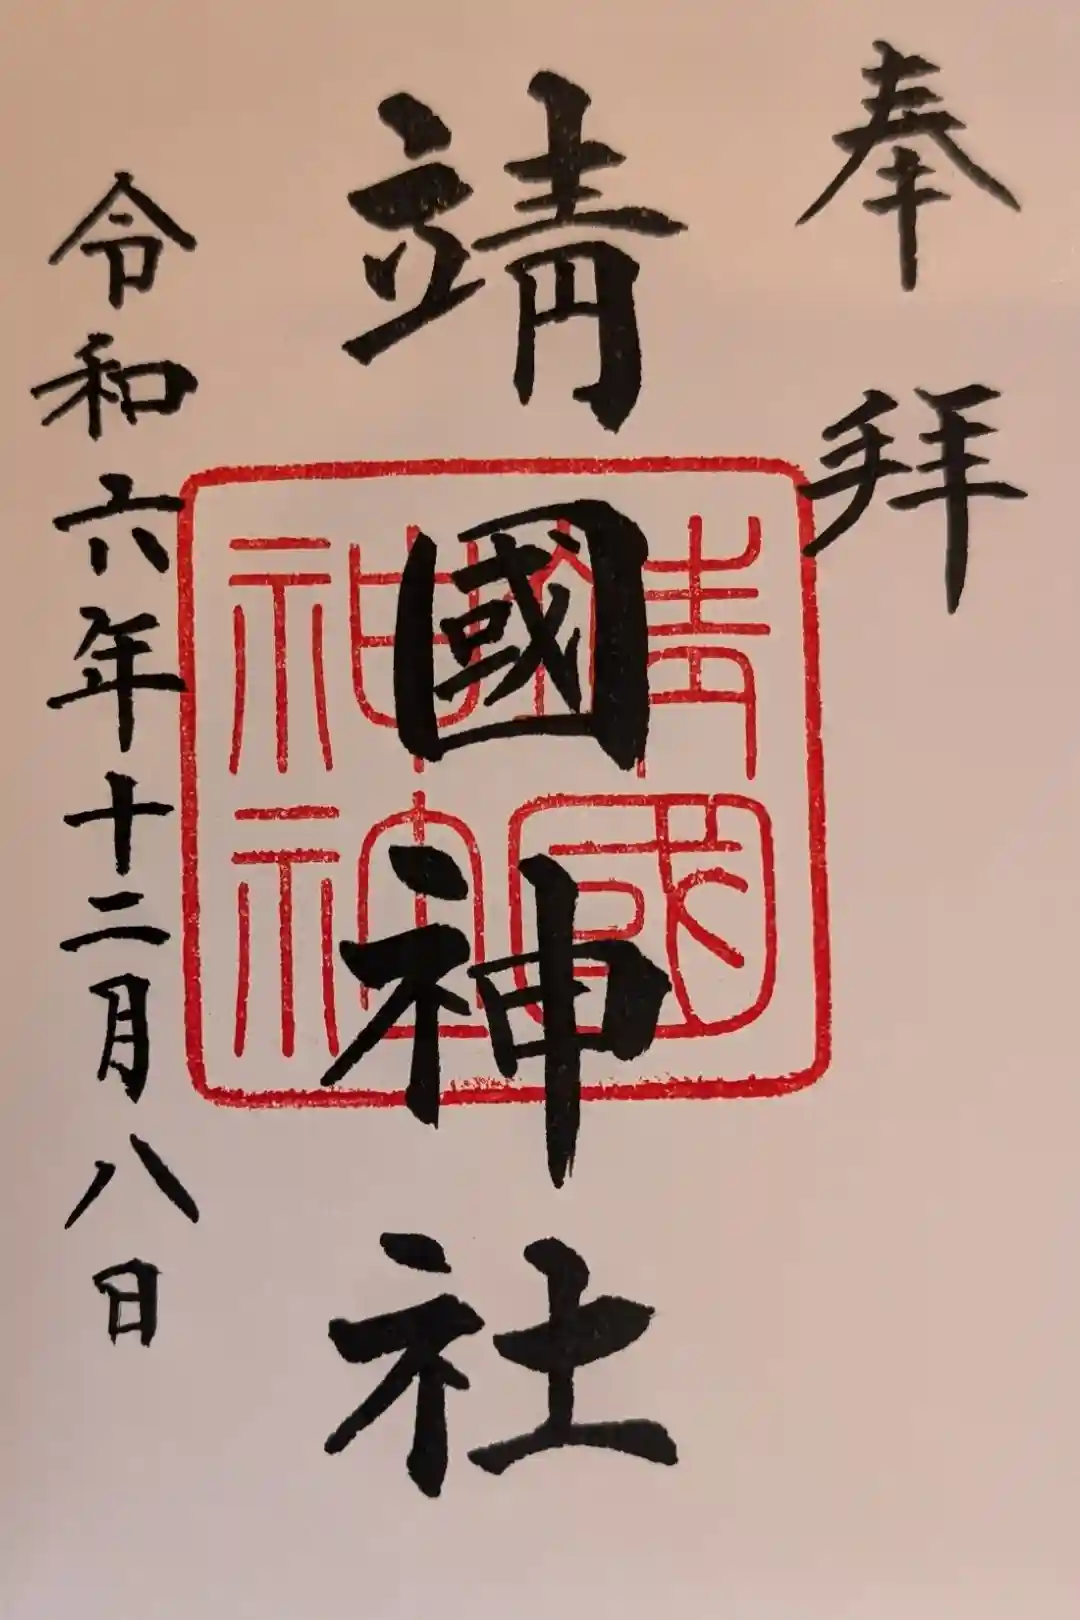 奉拜
靖國神社
靖國神社
令和六年十二月八日